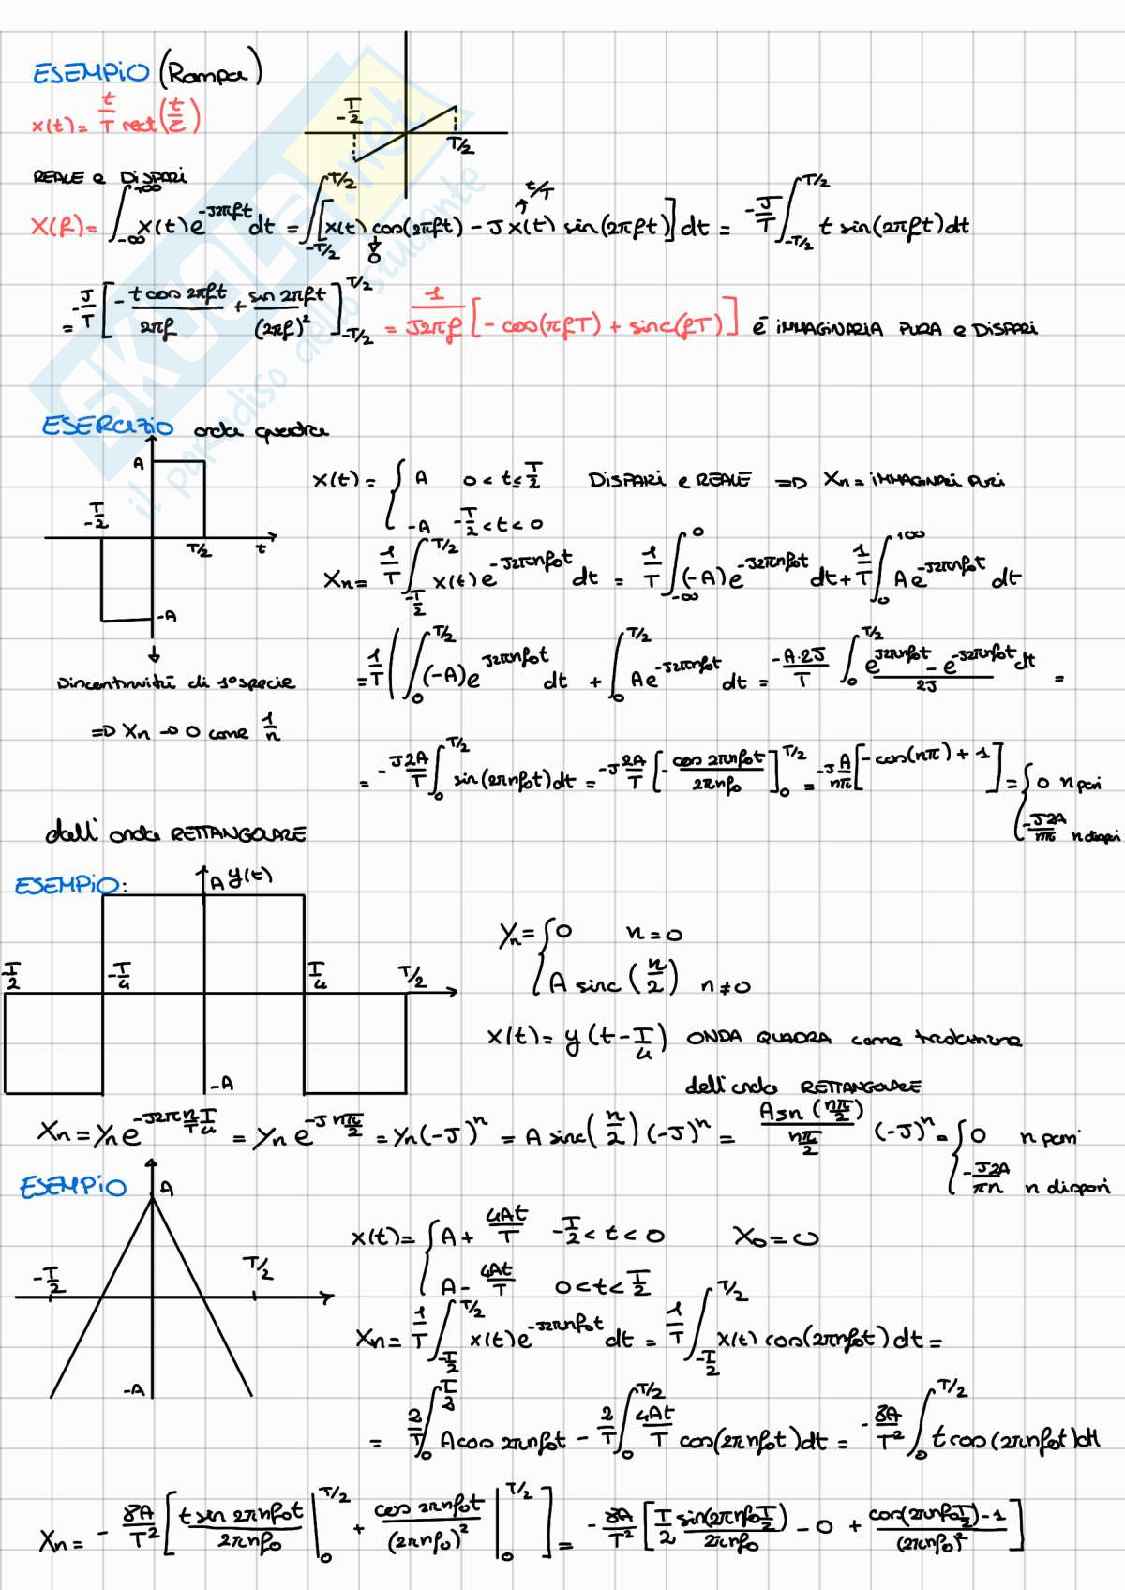 ESEMPIO (Rampa)
x(t) = t/T rect(t/τ)
-T/2 T/2
REALE e DISPARI
X(f) = ∫_{-∞}^{+∞} x(t) e^{-J2πft} dt = ∫_{-T/2}^{T/2} [x(t) cos(2πft) - J x(t) sin(2πft)] dt = -J/T ∫_{-T/2}^{T/2} t sin(2πft) dt
0 t/T
= -J/T [-t cos 2πft / 2πf + sin 2πft / (2πf)²]_{-T/2}^{T/2} = 1/J2πf [-cos(πfT) + sinc(fT)] È IMMAGINARIA PURA e DISPARI
SKUOLA.net
il paradiso dello studente
ESERCIZIO onda quadra
A -T/2 T/2 t -A
x(t) = { A 0 < t ≤ T/2 DISPARI e REALE => Xn = IMMAGINARI PURI
-A -T/2 < t < 0
Xn = 1/T ∫_{-T/2}^{T/2} x(t) e^{-J2πnf₀t} dt = 1/T ∫_{-∞}^{0} (-A) e^{-J2πnf₀t} dt + 1/T ∫_{0}^{100} A e^{-J2πnf₀t} dt
= 1/T ( ∫_{0}^{T/2} (-A) e^{J2πnf₀t} dt + ∫_{0}^{T/2} A e^{-J2πnf₀t} dt = -A·2J/T ∫_{0}^{T/2} e^{J2πnf₀t} - e^{-J2πnf₀t} dt / 2J =
Discontinuità di 1° specie
=> Xn → 0 come 1/n
= -J2A/T ∫_{0}^{T/2} sin(2πnf₀t) dt = -J 2A/T [-cos 2πnf₀t / 2πnf₀]_{0}^{T/2} = -J A/nπ [-cos(nπ) + 1] = { 0 n pari
-J2A/nπ n dispari
dall' onda RETTANGOLARE
ESEMPIO:
A y(t)
T/2 -T/4 T/4 T/2
-A
Yn = { 0 n = 0
A sinc(n/2) n ≠ 0
x(t) = y(t - T/4) ONDA QUADRA come traslazione
dell'onda RETTANGOLARE
Xn = Yn e^{-J2π n/T T/4} = Yn e^{-J nπ/2} = Yn (-J)^n = A sinc(n/2) (-J)^n = A sn(nπ/2) / nπ/2 (-J)^n = { 0 n pari
-J2A/πn n dispari
ESEMPIO
A -T/2 T/2 -A
x(t) = { A + 4At/T -T/2 < t < 0 X₀ = 0
A - 4At/T 0 < t < T/2
Xn = 1/T ∫_{-T/2}^{T/2} x(t) e^{-J2πnf₀t} dt = 1/T ∫_{-T/2}^{T/2} x(t) cos(2πnf₀t) dt =
= 2/T ∫_{0}^{T/2} A cos 2πnf₀t - 2/T ∫_{0}^{T/2} 4At/T cos(2πnf₀t) dt = -8A/T² ∫_{0}^{T/2} t cos(2πnf₀t) dt
Xn = -8A/T² [t sen 2πnf₀t / 2πnf₀ |_{0}^{T/2} + cos 2πnf₀t / (2πnf₀)² |_{0}^{T/2}] = -8A/T² [T/2 sin(2πnf₀T/2) / 2πnf₀ - 0 + cos(2πnf₀T/2) - 1 / (2πnf₀)²]